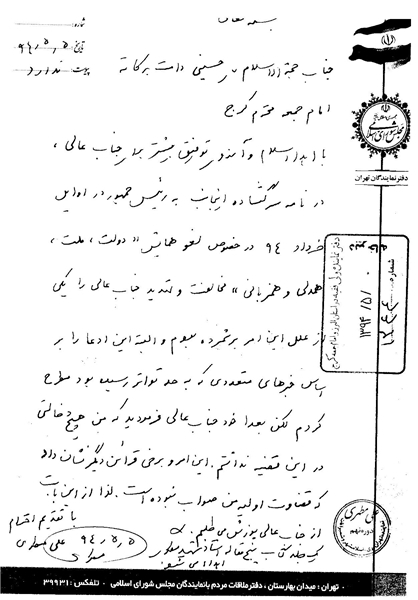 بسمه تعالی
شماره:
تاریخ: ۹۴/۵/۵
پیوست: ندارد
جمهوری اسلامی ایران
مجلس شورای اسلامی
دفتر نمایندگان تهران
جناب حجة الاسلام حسینی دامت برکاته
امام جمعه محترم کرج
با اهداء سلام و آرزوی توفیق بیشتر برای جناب عالی،
در نامه سرگشاده اینجانب به رئیس جمهور در اوایل
خرداد ۹۴ در خصوص لغو همایش «دولت، ملت،
همدلی و همزبانی» مخالفت و تهدید جناب عالی را یکی
از علل این امر برشمرده بودم و البته این ادعا را بر
اساس خبرهای متعددی که به حد تواتر رسیده بود مطرح
کردم لکن بعدا خود جناب عالی فرمودید که من هیچ دخالتی
در این قضیه نداشتم. این امر و برخی قرائن دیگر نشان داد
که قضاوت اولیه من صواب نبوده است. لذا از این بابت
از جناب عالی پوزش می طلبم.
با تقدیم احترام
علی مطهری
۹۴/۵/۵
یک جلد کتاب
اهدا می شود
شماره
۱۳۹۴/۵/
علی مطهری
تهران: میدان بهارستان، دفتر ملاقات مردم با نمایندگان مجلس شورای اسلامی - تلفکس: ۳۹۹۳۱